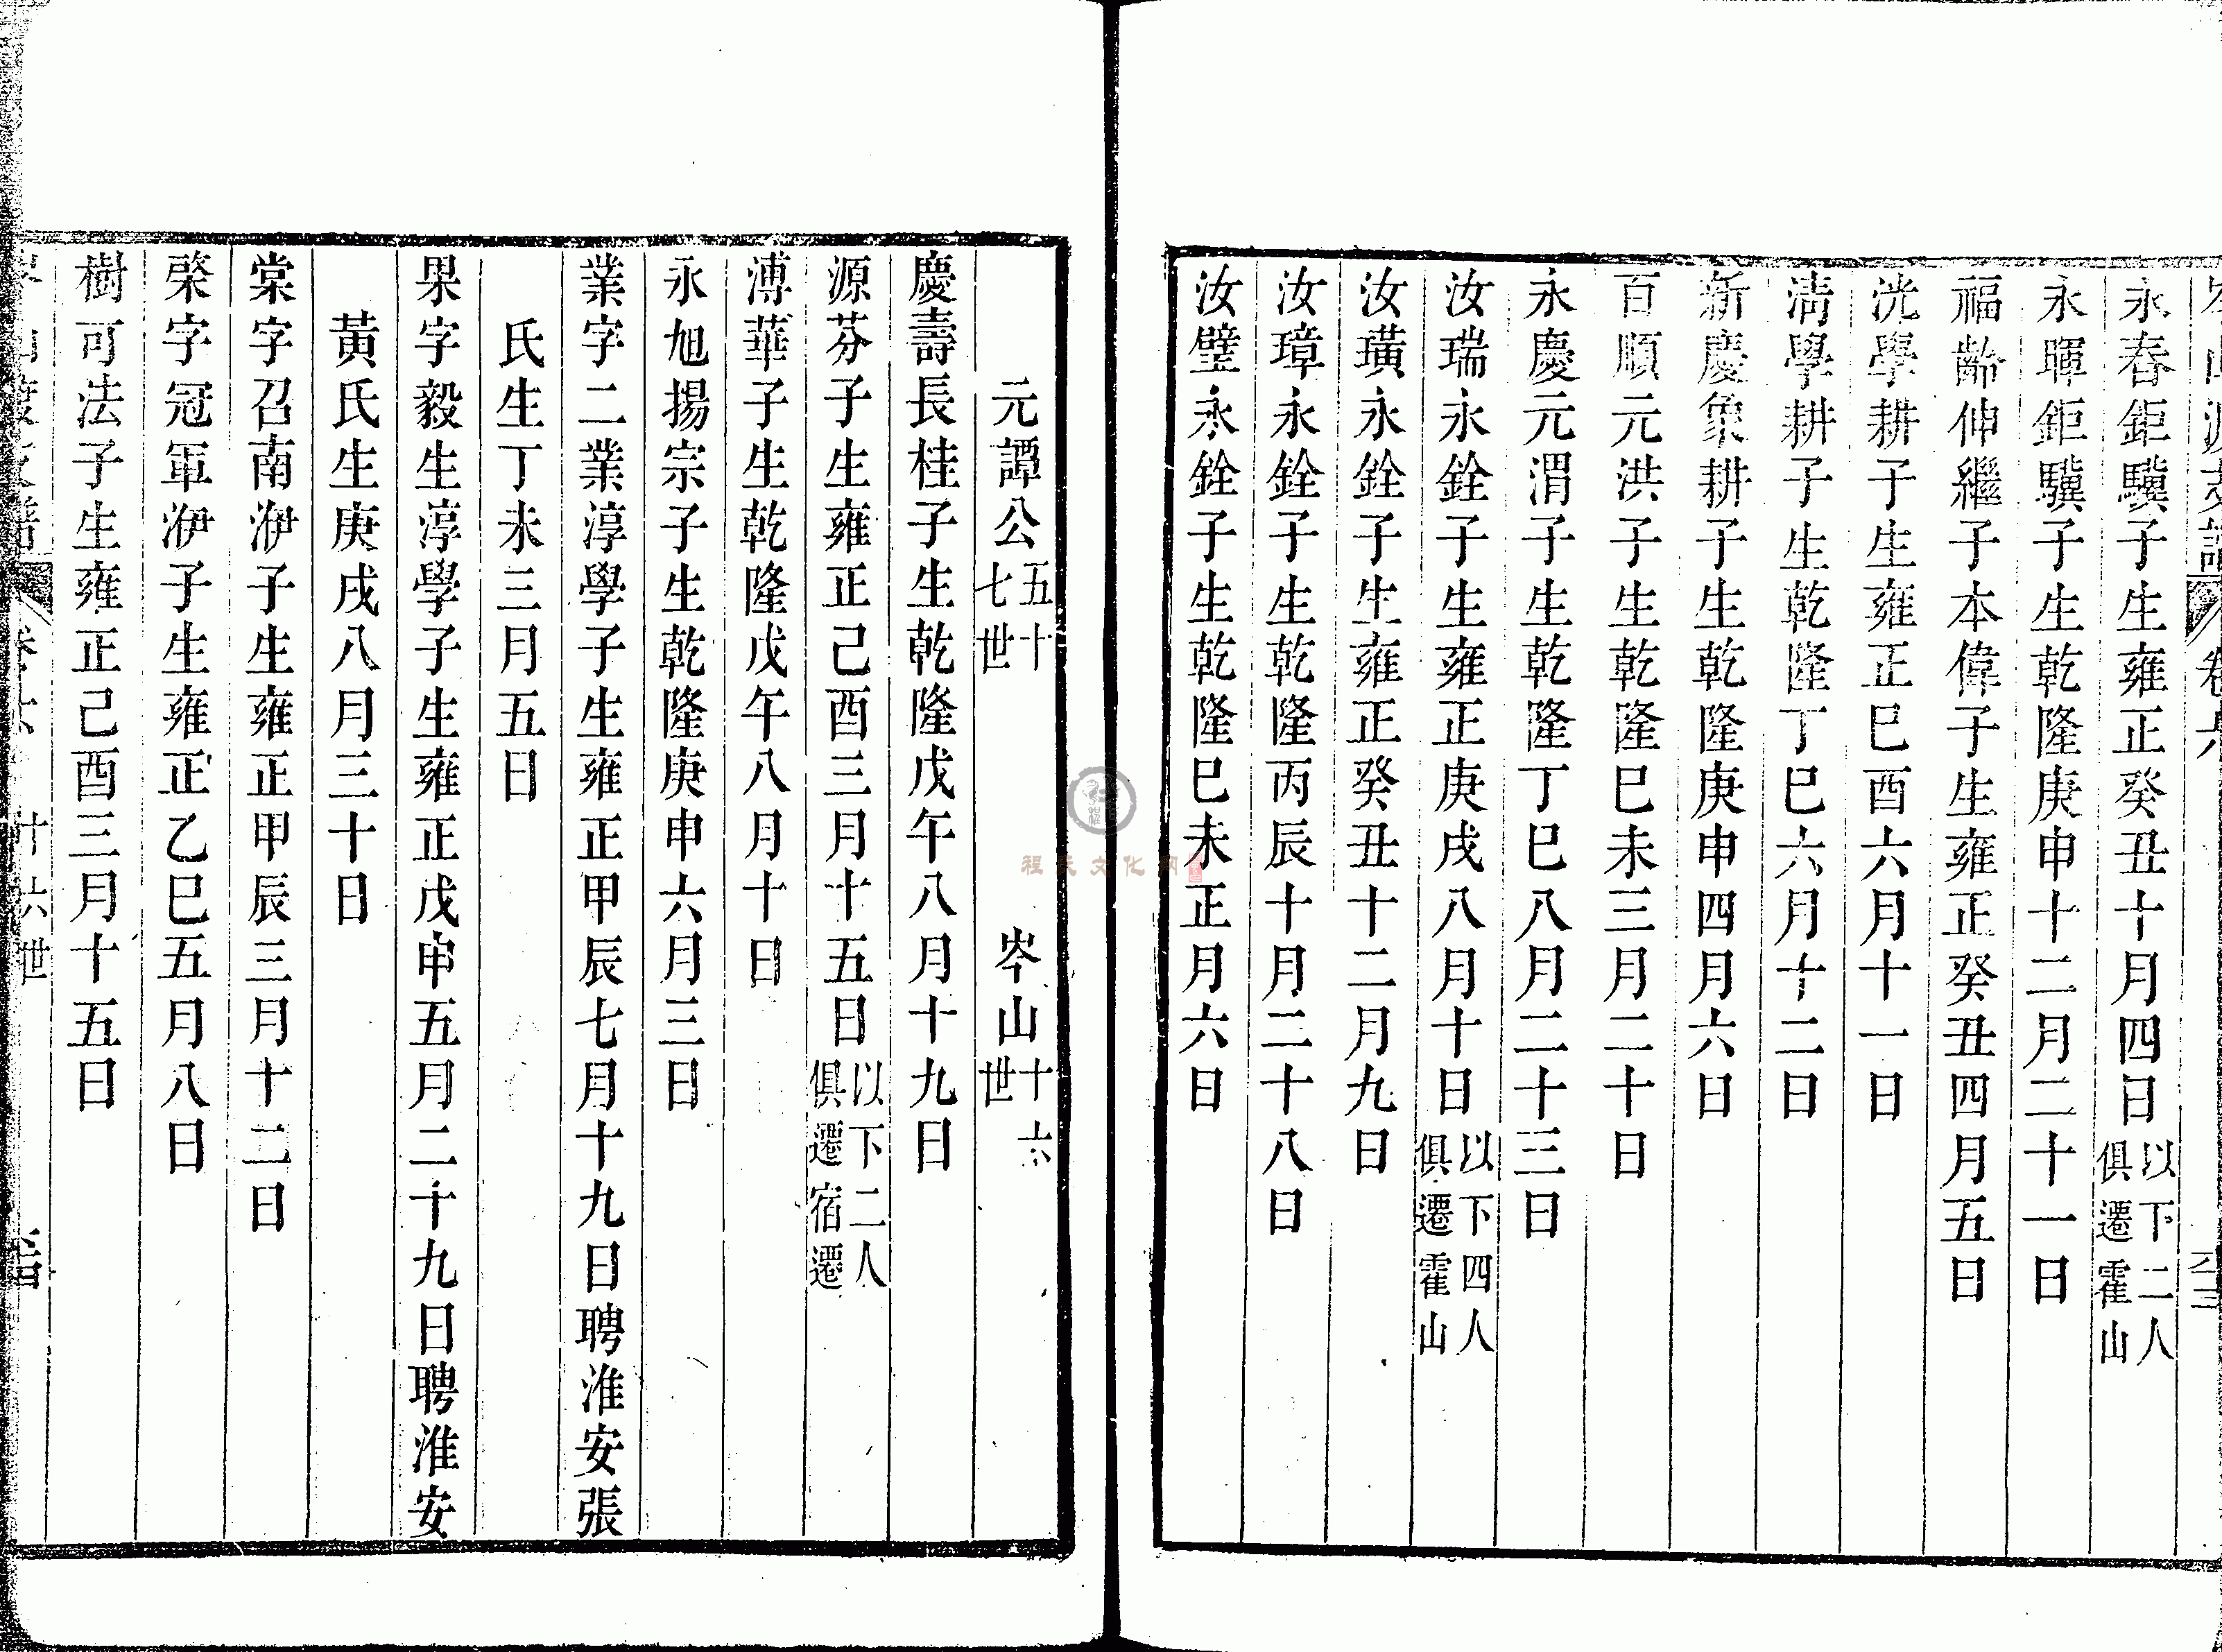 永春鉅驥子生雍正癸丑十月四日以下二人俱遷霍山
永暉鉅驥子生乾隆庚申十二月二十一日
福齡伸繼子本偉子生雍正癸丑四月五日
洸學耕子生雍正巳酉六月十一日
淸學耕子生乾隆丁巳六月十二日
新慶象耕子生乾隆庚申四月六日
百順元洪子生乾隆巳未三月二十日
永慶元渭子生乾隆丁巳八月二十三日
汝瑞永銓子生雍正庚戌八月十日以下四人俱遷霍山
汝璜永銓子生雍正癸丑十二月九日
汝璋永銓子生乾隆丙辰十月二十八日
汝璧永銓子生乾隆巳未正月六日
元譚公五十七世 岑山十六世
慶壽長桂子生乾隆戊午八月十九日
源芬子生雍正己酉三月十五日以下二人俱遷宿遷
溥華子生乾隆戊午八月十日
永旭揚宗子生乾隆庚申六月三日
業字二業淳學子生雍正甲辰七月十九日聘淮安張
氏生丁未三月五日
果字毅生淳學子生雍正戊申五月二十九日聘淮安
黃氏生庚戌八月三十日
棠字召南洢子生雍正甲辰三月十二日
棨字冠軍洢子生雍正乙巳五月八日
樹可法子生雍正己酉三月十五日
十六世
程氏文化網